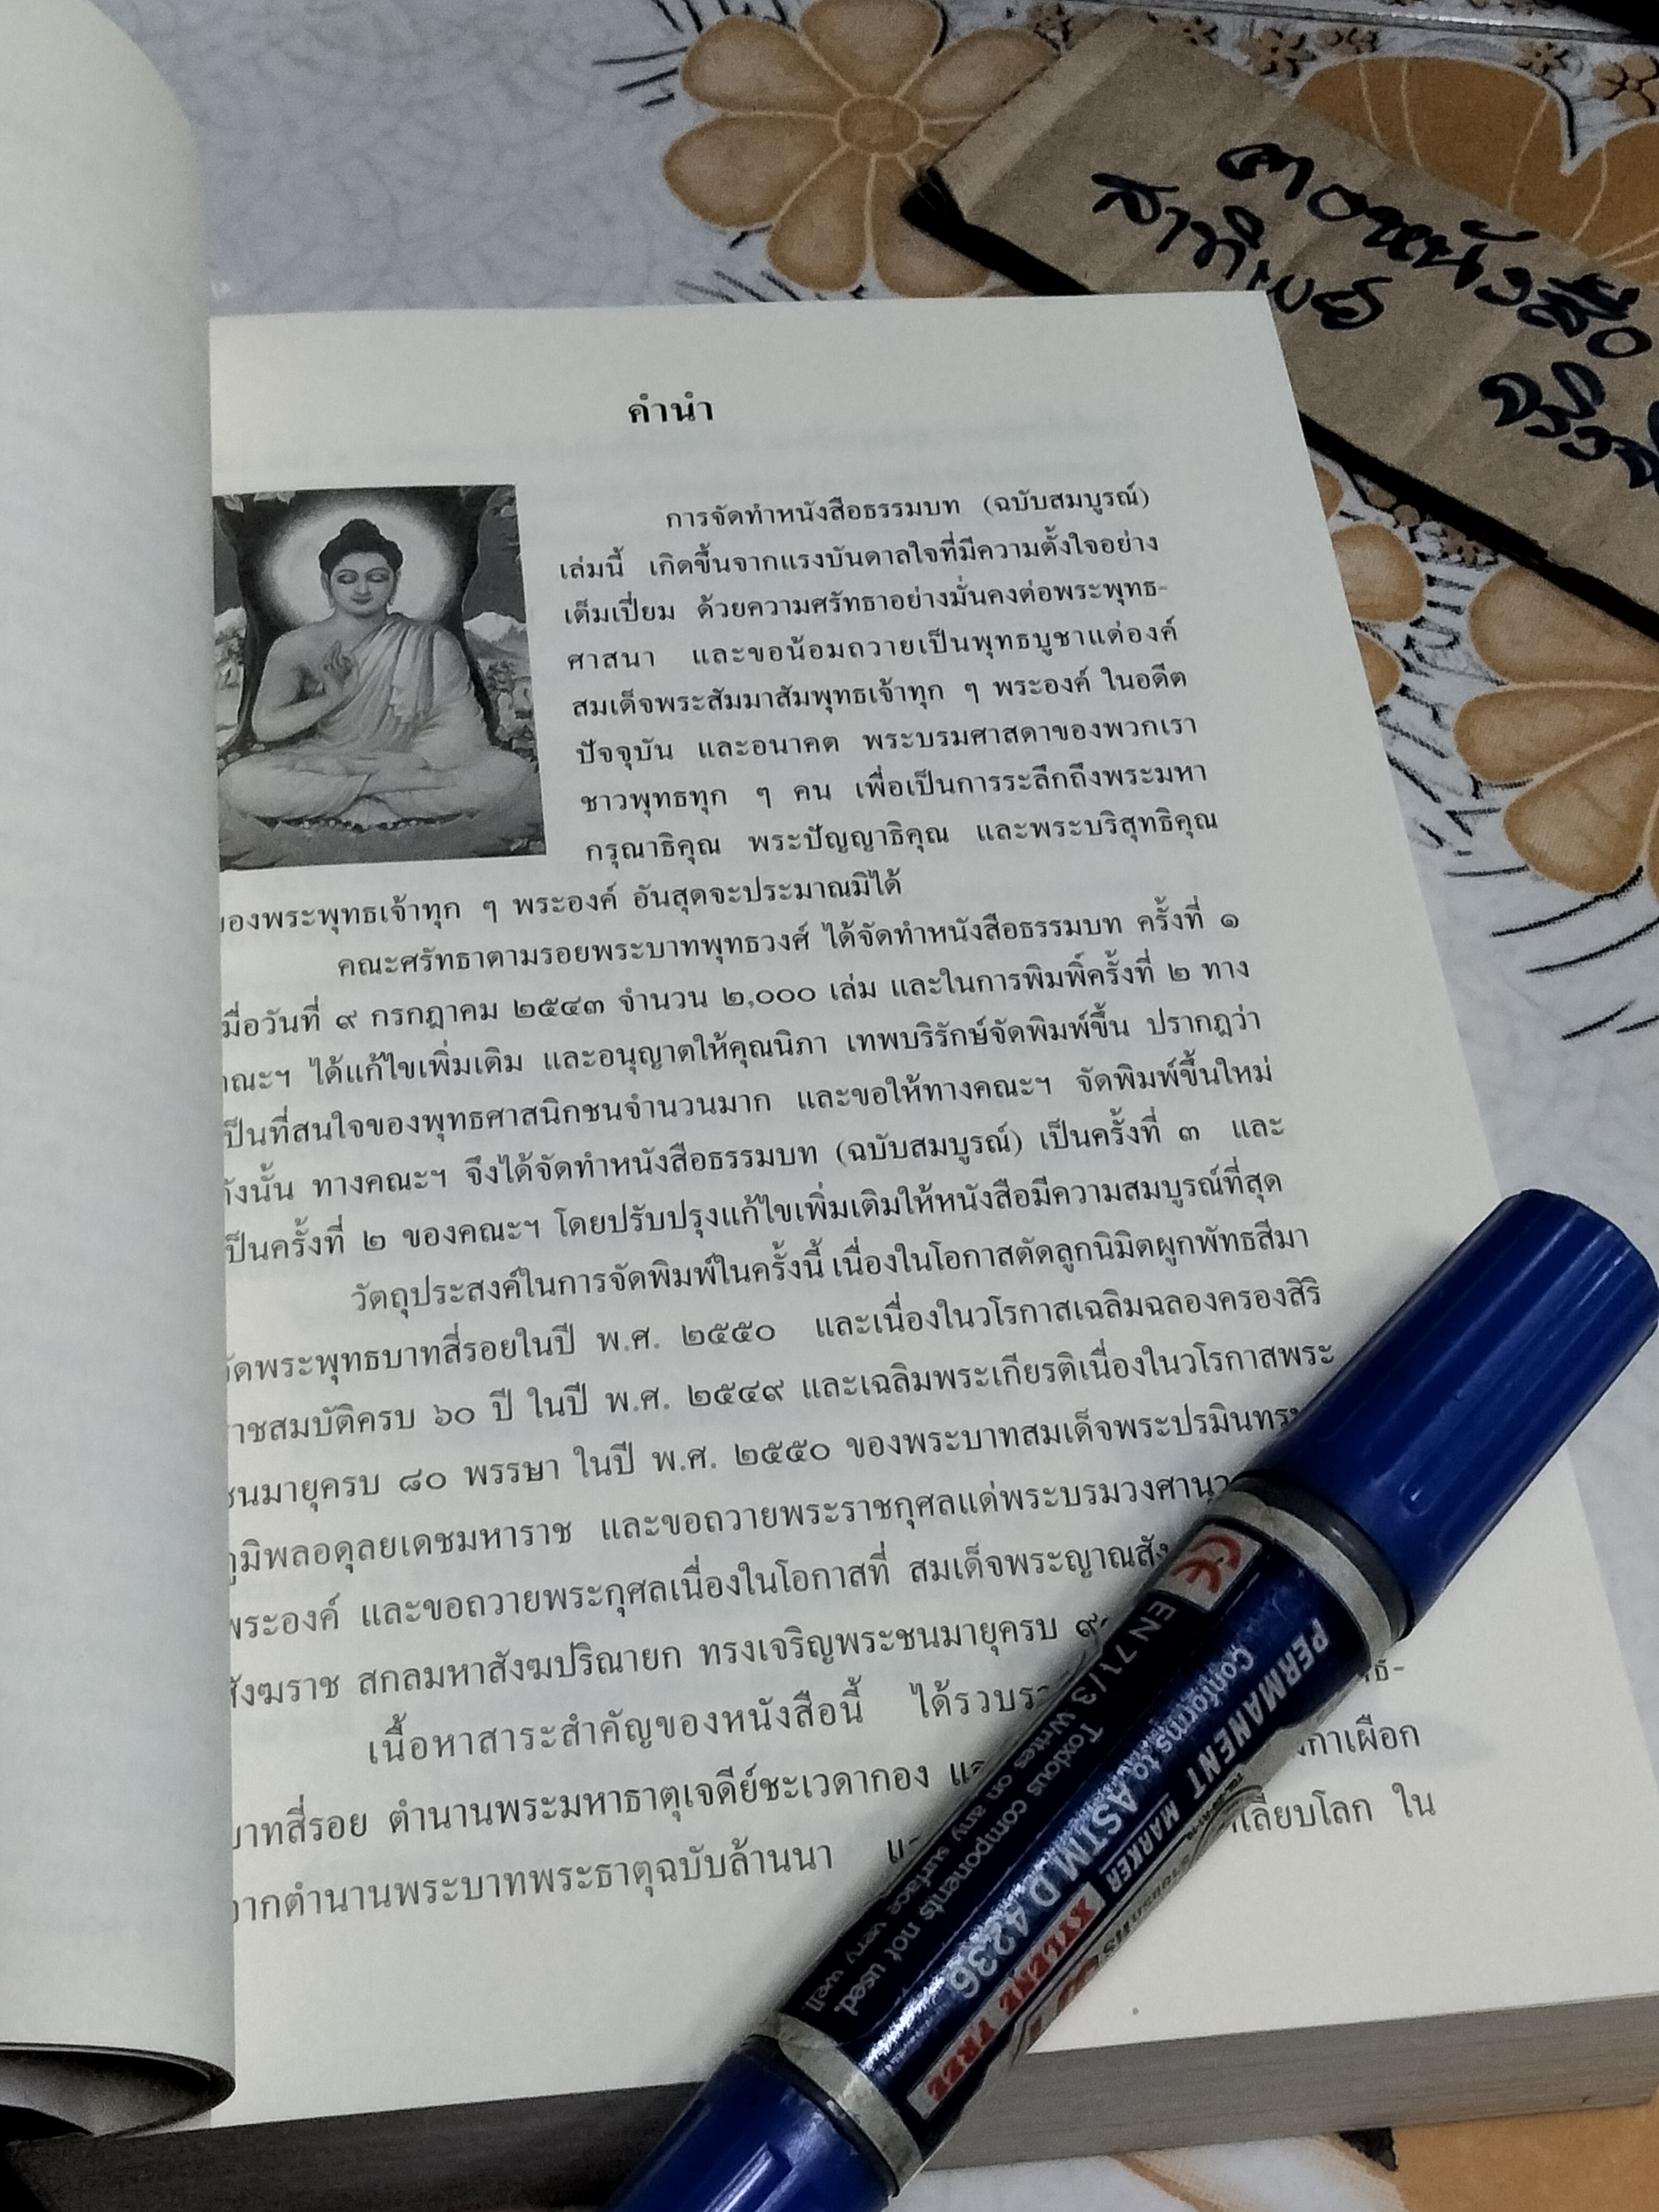 คำนำ
การจัดทำหนังสือธรรมบท (ฉบับสมบูรณ์)
เล่มนี้ เกิดขึ้นจากแรงบันดาลใจที่มีความตั้งใจอย่าง
เต็มเปี่ยม ด้วยความศรัทธาอย่างมั่นคงต่อพระพุทธ-
ศาสนา และขอน้อมถวายเป็นพุทธบูชาแด่องค์
สมเด็จพระสัมมาสัมพุทธเจ้าทุก ๆ พระองค์ ในอดีต
ปัจจุบัน และอนาคต พระบรมศาสดาของพวกเรา
ชาวพุทธทุก ๆ คน เพื่อเป็นการระลึกถึงพระมหา
กรุณาธิคุณ พระปัญญาธิคุณ และพระบริสุทธิคุณ
ของพระพุทธเจ้าทุก ๆ พระองค์ อันสุดจะประมาณมิได้
คณะศรัทธาตามรอยพระบาทพุทธวงศ์ ได้จัดทำหนังสือธรรมบท ครั้งที่ ๑
มื่อวันที่ ๙ กรกฎาคม ๒๕๔๓ จำนวน ๒,๐๐๐ เล่ม และในการพิมพิ์ครั้งที่ ๒ ทาง
ณะฯ ได้แก้ไขเพิ่มเติม และอนุญาตให้คุณนิภา เทพบริรักษ์จัดพิมพ์ขึ้น ปรากฎว่า
ป็นที่สนใจของพุทธศาสนิกชนจำนวนมาก และขอให้ทางคณะฯ จัดพิมพ์ขึ้นใหม่
ดังนั้น ทางคณะฯ จึงได้จัดทำหนังสือธรรมบท (ฉบับสมบูรณ์) เป็นครั้งที่ ๓ และ
ป็นครั้งที่ ๒ ของคณะฯ โดยปรับปรุงแก้ไขเพิ่มเติมให้หนังสือมีความสมบูรณ์ที่สุด
วัตถุประสงค์ในการจัดพิมพ์ในครั้งนี้ เนื่องในโอกาสตัดลูกนิมิตผูกพัทธสีมา
วัดพระพุทธบาทสี่รอยในปี พ.ศ. ๒๕๕๐ และเนื่องในวโรกาสเฉลิมฉลองครองสิริ
ราชสมบัติครบ ๖๐ ปี ในปี พ.ศ. ๒๕๔๙ และเฉลิมพระเกียรติเนื่องในวโรกาสพระ
ชนมายุครบ ๘๐ พรรษา ในปี พ.ศ. ๒๕๕๐ ของพระบาทสมเด็จพระปรมินทร
ภูมิพลอดุลยเดชมหาราช และขอถวายพระราชกุศลแด่พระบรมวงศานุว
พระองค์ และขอถวายพระกุศลเนื่องในโอกาสที่ สมเด็จพระญาณสัง
สังฆราช สกลมหาสังฆปริณายก ทรงเจริญพระชนมายุครบ ๙
เนื้อหาสาระสำคัญของหนังสือนี้ ได้รวบร
บาทสี่รอย ตำนานพระมหาธาตุเจดีย์ชะเวดากอง แ กาเผือก
จากตำนานพระบาทพระธาตุฉบับล้านนา แ เลียบโลก ใน
ตอหนังสือ
สาทิพย์
PERMANENT
MARKER
Conforms to ASTM D 4236
XYLENE FREE
Toxious components not used.
EN 71/3 Writes on any surface very well
CE